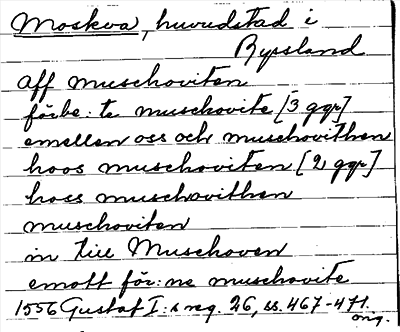 Moskva, huvudstad i
Ryssland
aff muschoviten
förbe:te muschovite [3 ggr]
emellen oss och muschovithen
hoos muschoviten [2 ggr]
hoss muschovithen
muschoviten
in till Muschoven
emott för:ne muschovite
1556 Gustaf I:s reg. 26, ss. 467-471.
orig.